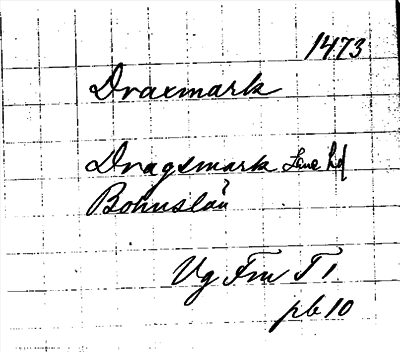 1473
Draxmark
Dragsmark Lane hd
Bohuslän
Vg Fm T 1
pb 10